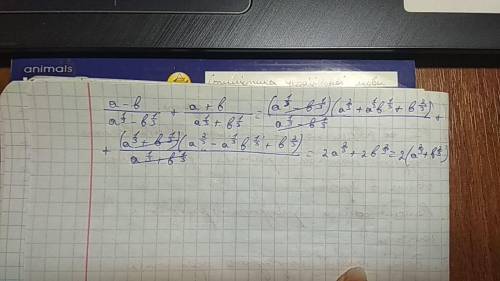 animals
(a-b)/(a^{1/3} - b^{1/3}) + (a+b)/(a^{1/3} + b^{1/3}) = (a^{1/3} - b^{1/3})(a^{2/3} + a^{1/3}b^{1/3} + b^{2/3})/(a^{1/3} - b^{1/3}) +
+ (a^{1/3} + b^{1/3})(a^{2/3} - a^{1/3}b^{1/3} + b^{2/3})/(a^{1/3} + b^{1/3}) = 2a^{2/3} + 2b^{2/3} = 2(a^{2/3} + b^{2/3})